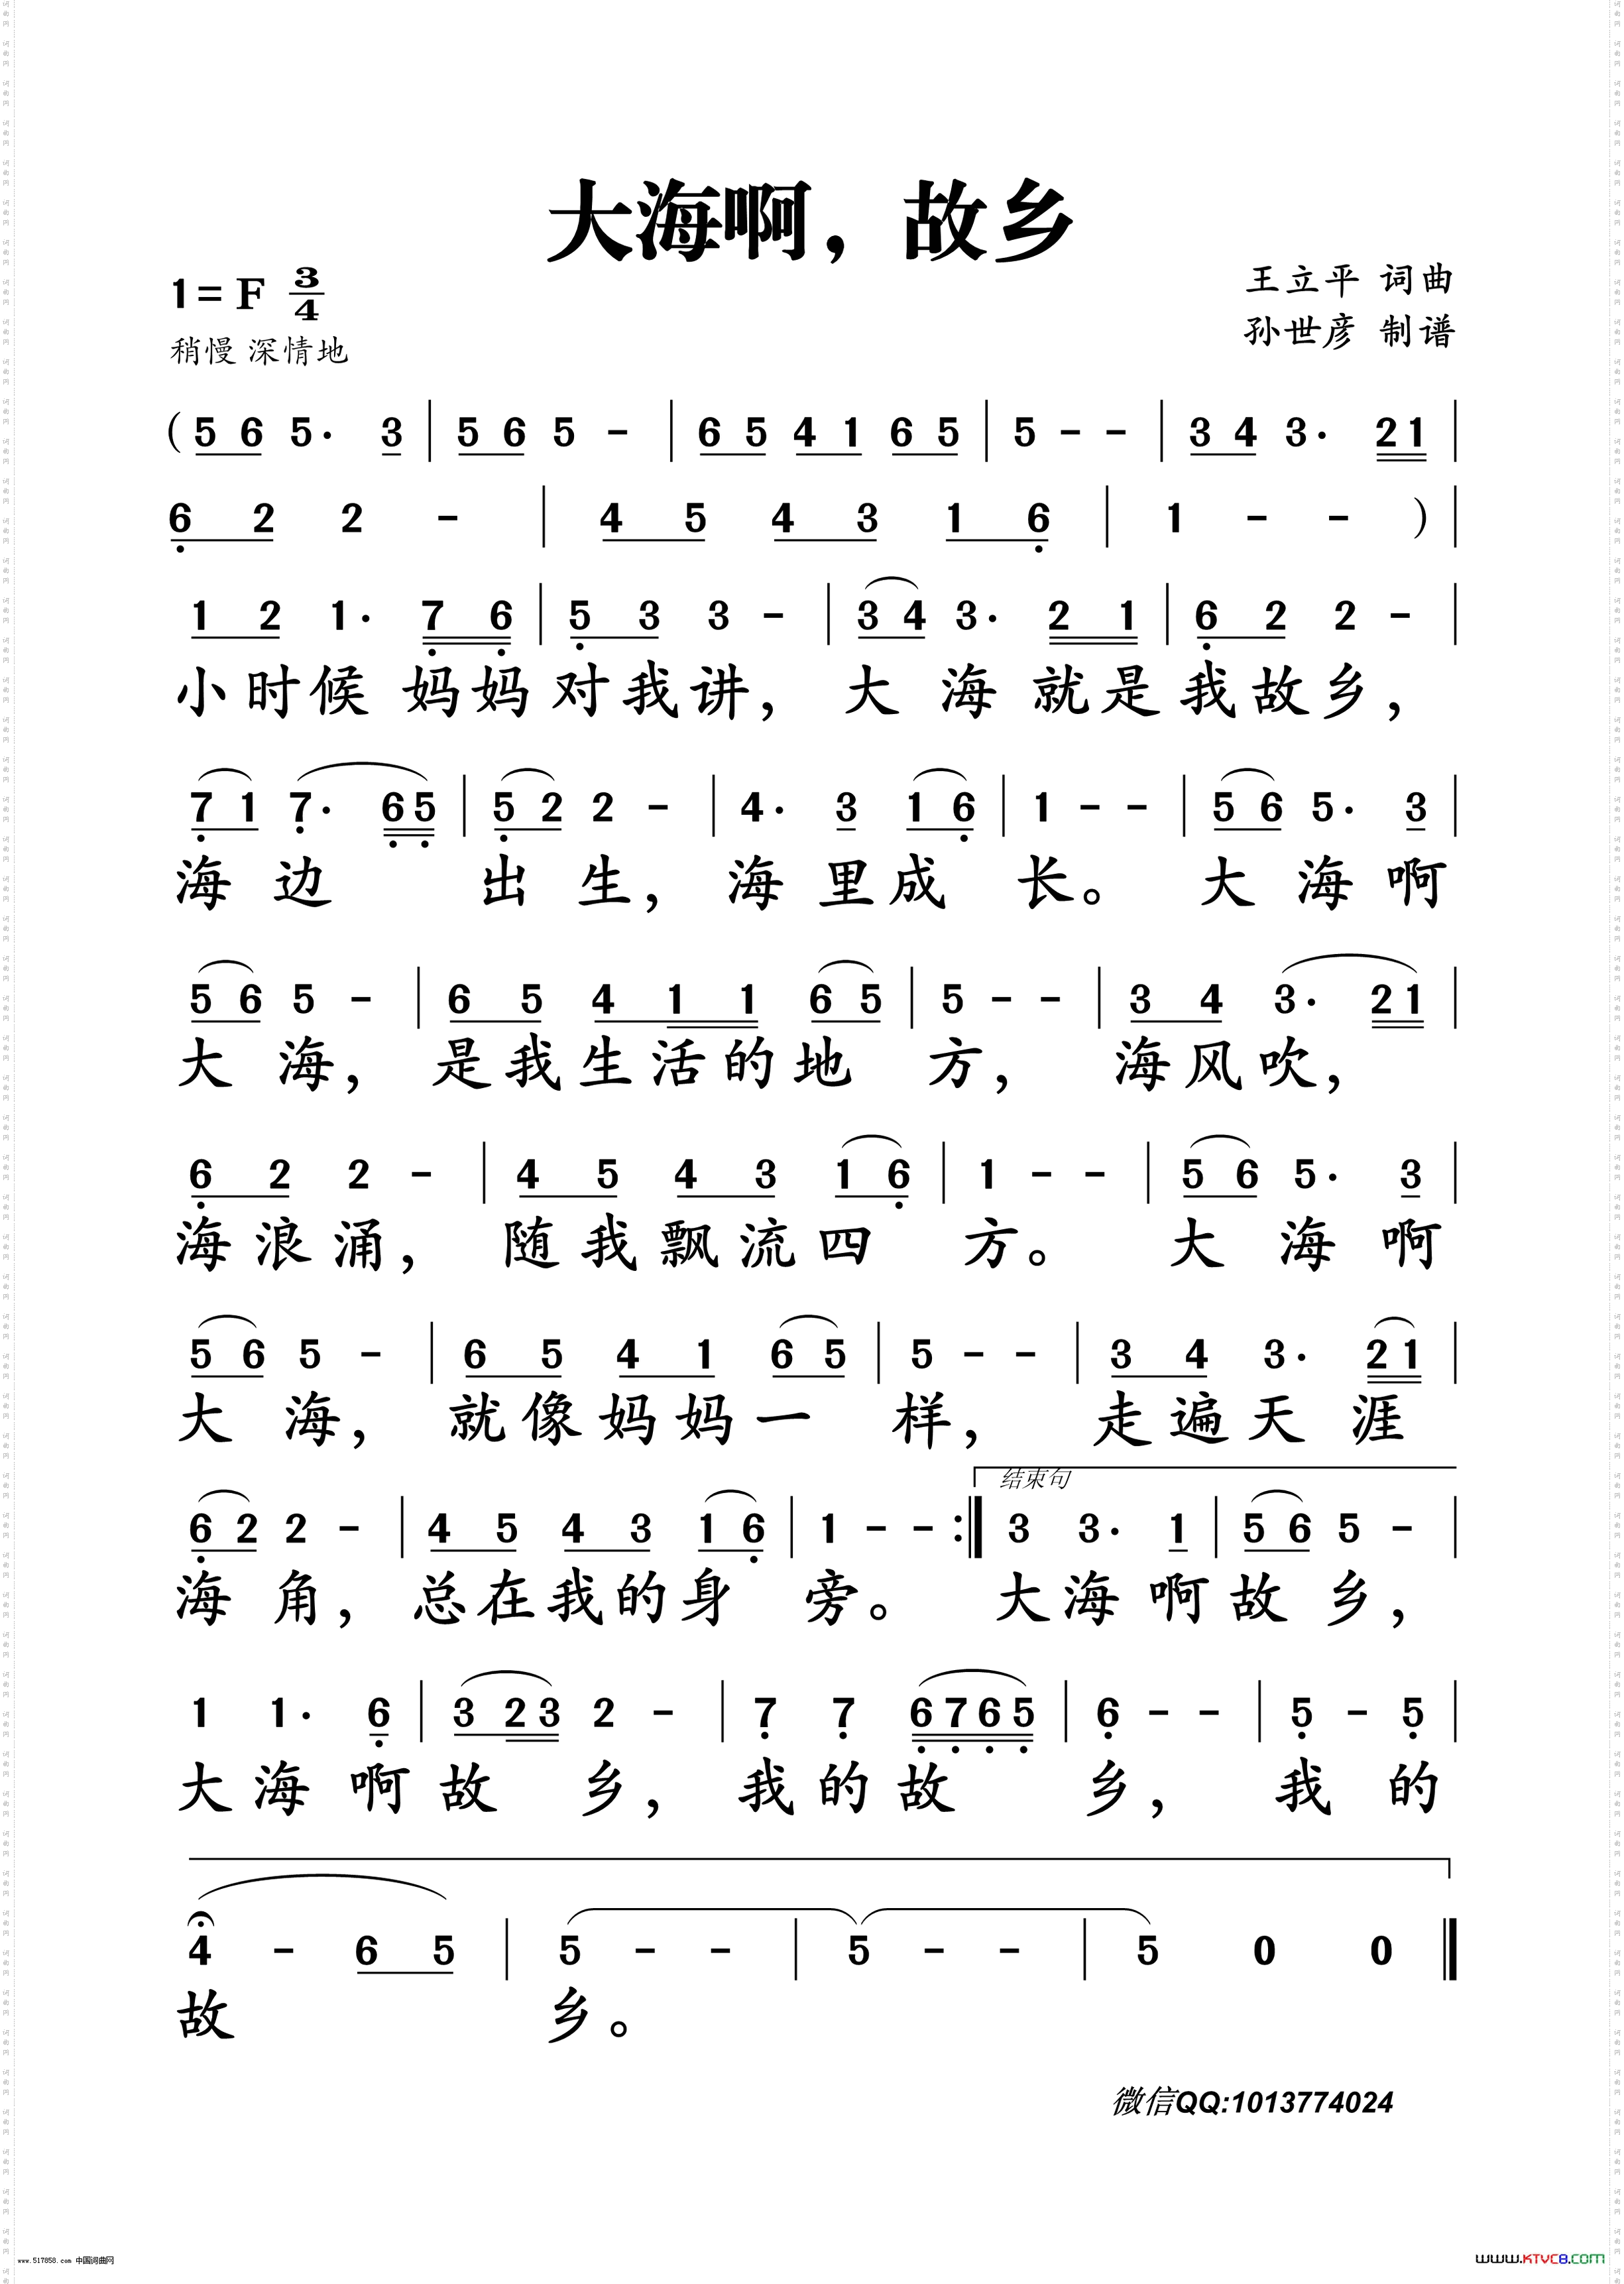 大海啊，故乡
1=F 3/4
王立平 词曲
稍慢 深情地
孙世彦 制谱
(5 6 5· 3 | 5 6 5 - | 6 5 4 1 6 5 | 5 - - | 3 4 3· 2 1 |
6 2 2 - | 4 5 4 3 1 6 | 1 - - ) |
1 2 1· 7 6 | 5 3 3 - | 3 4 3· 2 1 | 6 2 2 - |
小时候 妈妈 对我讲， 大 海 就是 我故乡，
7 1 7· 6 5 | 5 2 2 - | 4· 3 1 6 | 1 - - | 5 6 5· 3 |
海 边 出 生， 海 里 成 长。 大 海 啊
5 6 5 - | 6 5 4 1 1 6 5 | 5 - - | 3 4 3· 2 1 |
大 海， 是我生活的地 方， 海风吹，
6 2 2 - | 4 5 4 3 1 6 | 1 - - | 5 6 5· 3 |
海浪涌， 随我飘流四 方。 大 海 啊
5 6 5 - | 6 5 4 1 6 5 | 5 - - | 3 4 3· 2 1 |
大 海， 就像妈妈一 样， 走遍天 涯
结束句
6 2 2 - | 4 5 4 3 1 6 | 1 - - :| 3 3· 1 | 5 6 5 - |
海 角， 总在我的身 旁。 大海 啊故 乡，
1 1· 6 | 3 2 3 2 - | 7 7 6 7 6 5 | 6 - - | 5 - 5 |
大 海 啊 故 乡， 我 的 故 乡， 我 的
4 - 6 5 | 5 - - | 5 - - | 5 0 0 ‖
故 乡。
微信QQ:1013774024
www.517858.com 中国词曲网
www.KTVC8.com